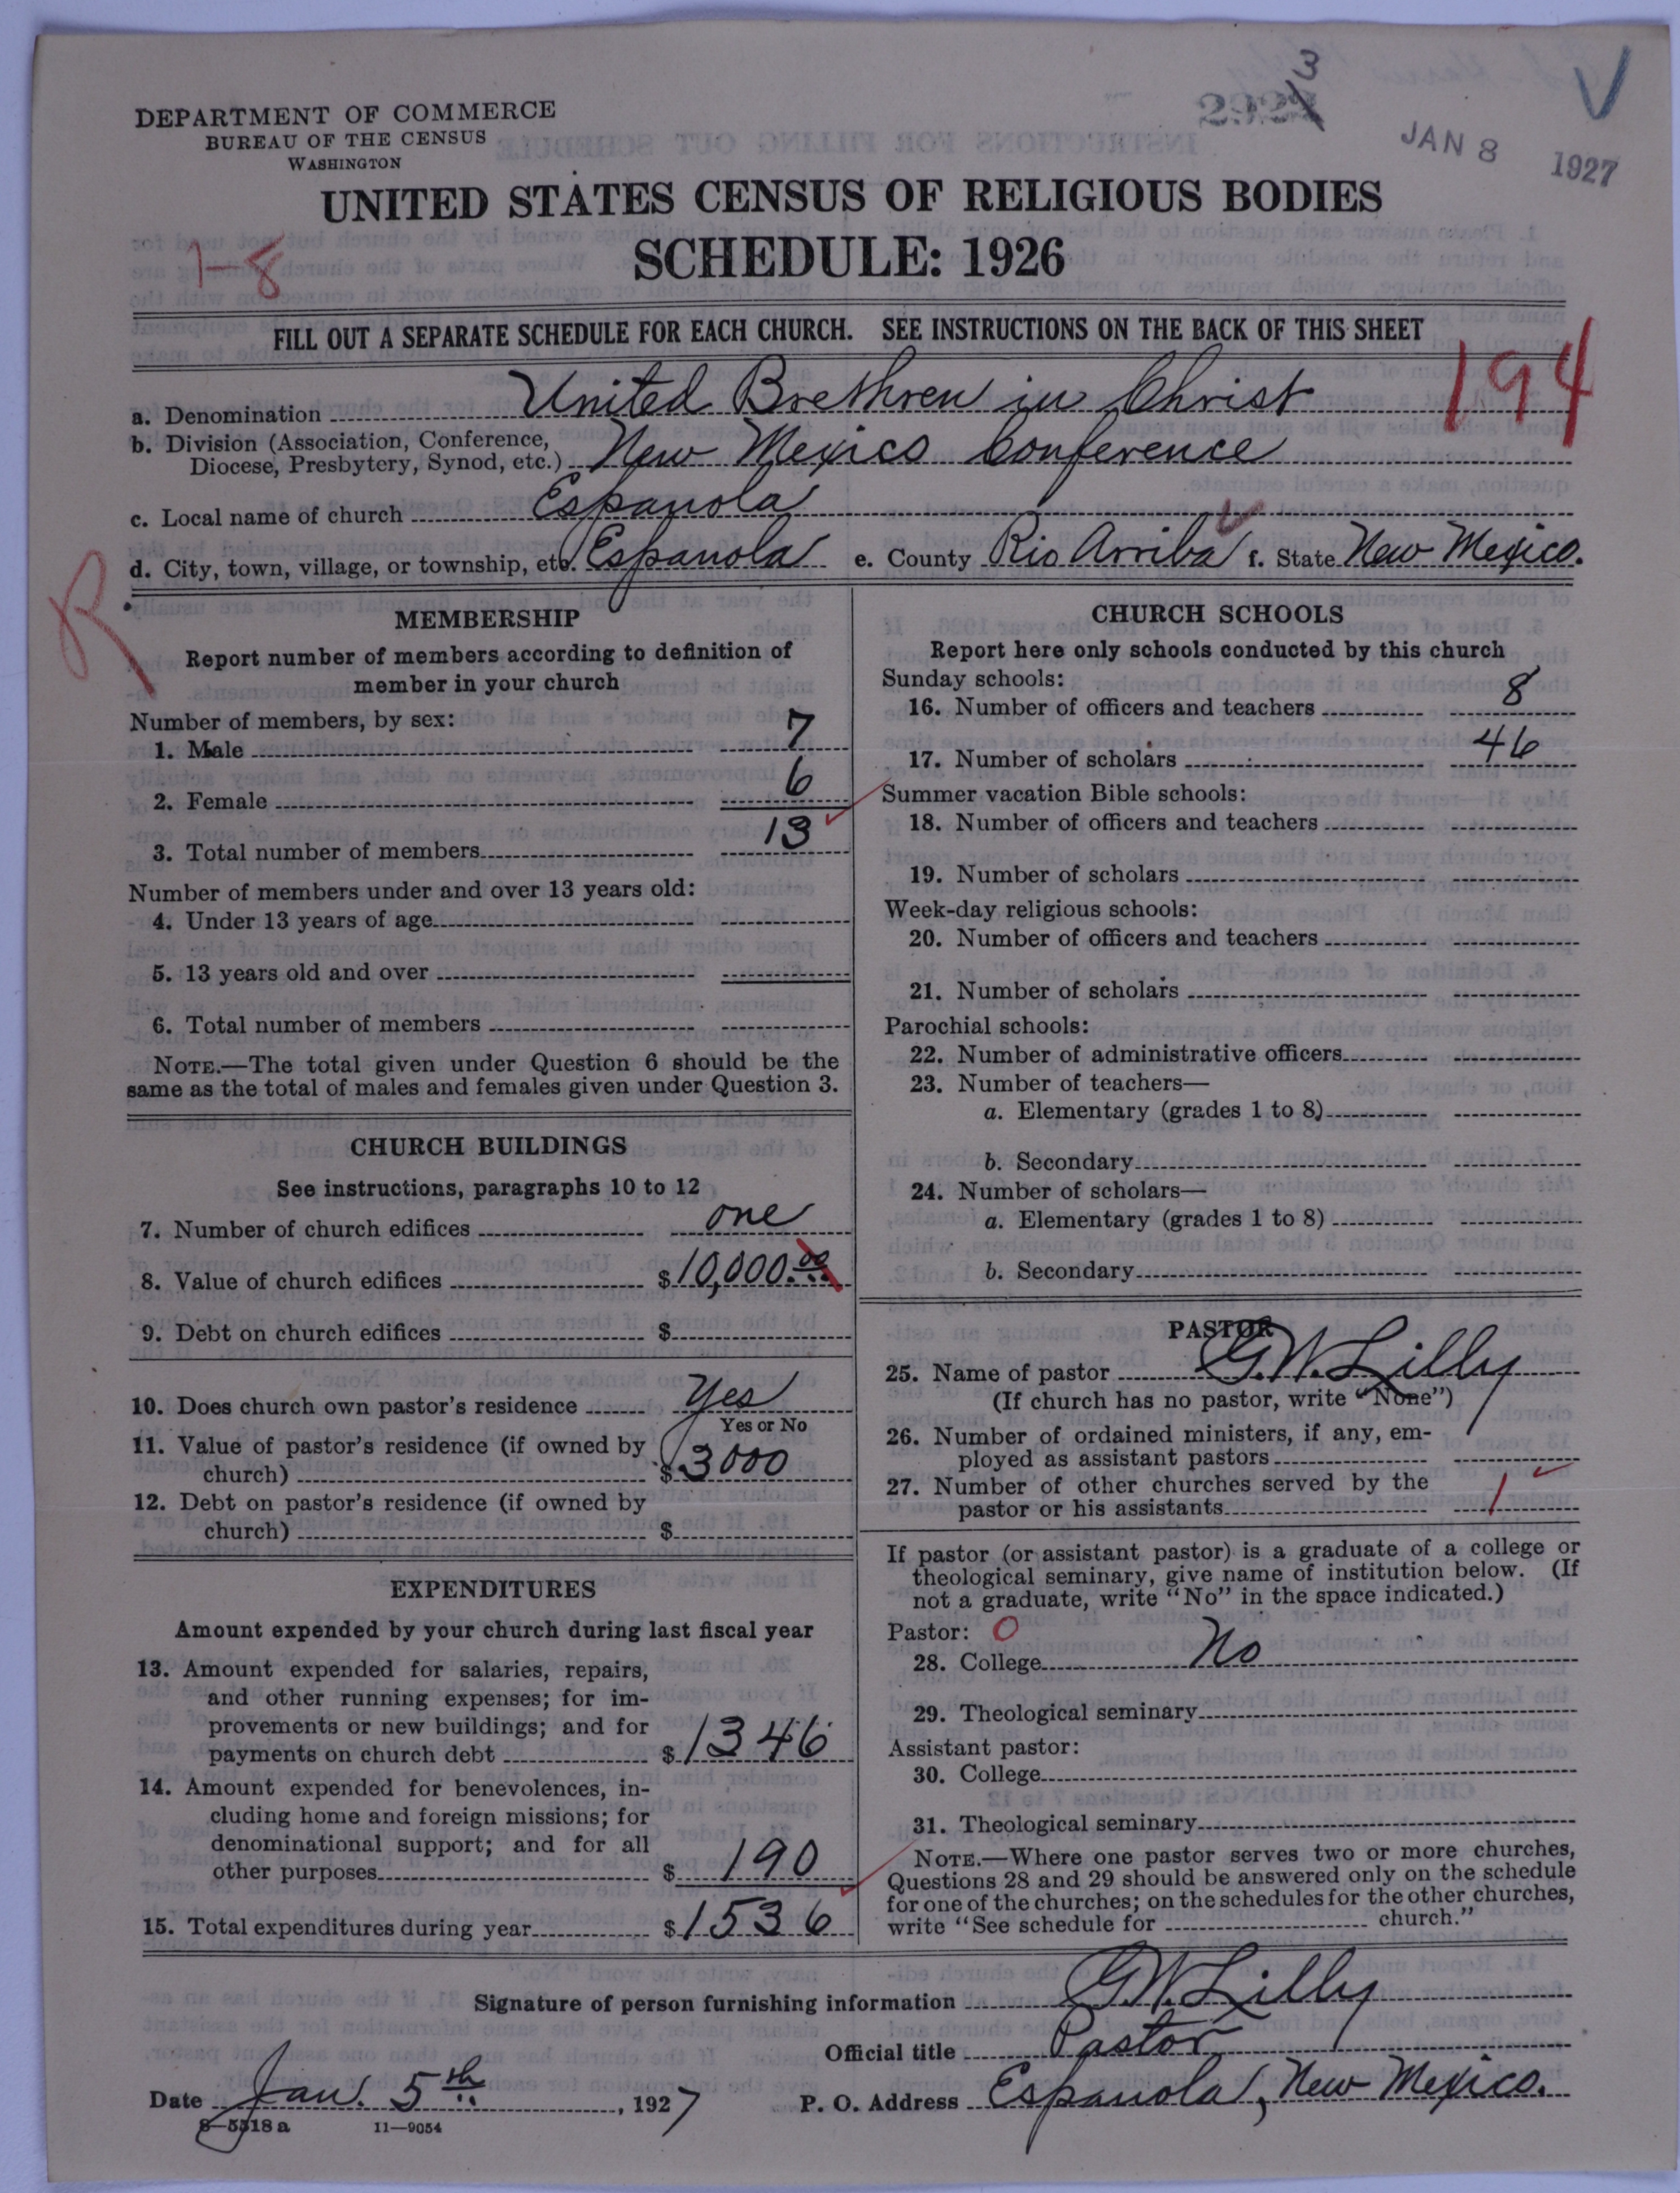 2924 3
JAN 8 1927
DEPARTMENT OF COMMERCE
BUREAU OF THE CENSUS
WASHINGTON
UNITED STATES CENSUS OF RELIGIOUS BODIES
1-8
SCHEDULE: 1926
FILL OUT A SEPARATE SCHEDULE FOR EACH CHURCH. SEE INSTRUCTIONS ON THE BACK OF THIS SHEET
194
a. Denomination United Brethren in Christ
b. Division (Association, Conference,
Diocese, Presbytery, Synod, etc.) New Mexico Conference
c. Local name of church Espanola
d. City, town, village, or township, etc. Espanola e. County Rio Arriba f. State New Mexico.
R
MEMBERSHIP
Report number of members according to definition of
member in your church
Number of members, by sex:
1. Male 7
2. Female 6
3. Total number of members 13
Number of members under and over 13 years old:
4. Under 13 years of age
5. 13 years old and over
6. Total number of members
NOTE.—The total given under Question 6 should be the
same as the total of males and females given under Question 3.
CHURCH BUILDINGS
See instructions, paragraphs 10 to 12
7. Number of church edifices one
8. Value of church edifices $10,000.00
9. Debt on church edifices $
10. Does church own pastor's residence Yes
Yes or No
11. Value of pastor's residence (if owned by
church) $3000
12. Debt on pastor's residence (if owned by
church) $
EXPENDITURES
Amount expended by your church during last fiscal year
13. Amount expended for salaries, repairs,
and other running expenses; for im-
provements or new buildings; and for
payments on church debt $1346
14. Amount expended for benevolences, in-
cluding home and foreign missions; for
denominational support; and for all
other purposes $190
15. Total expenditures during year $1536
CHURCH SCHOOLS
Report here only schools conducted by this church
Sunday schools:
16. Number of officers and teachers 8
17. Number of scholars 46
Summer vacation Bible schools:
18. Number of officers and teachers
19. Number of scholars
Week-day religious schools:
20. Number of officers and teachers
21. Number of scholars
Parochial schools:
22. Number of administrative officers
23. Number of teachers—
a. Elementary (grades 1 to 8)
b. Secondary
24. Number of scholars—
a. Elementary (grades 1 to 8)
b. Secondary
PASTOR
25. Name of pastor G.W. Lilly
(If church has no pastor, write "None")
26. Number of ordained ministers, if any, em-
ployed as assistant pastors
27. Number of other churches served by the
pastor or his assistants 1
If pastor (or assistant pastor) is a graduate of a college or
theological seminary, give name of institution below. (If
not a graduate, write "No" in the space indicated.)
Pastor: 0
28. College No
29. Theological seminary
Assistant pastor:
30. College
31. Theological seminary
NOTE.—Where one pastor serves two or more churches,
Questions 28 and 29 should be answered only on the schedule
for one of the churches; on the schedules for the other churches,
write "See schedule for church."
Signature of person furnishing information G.W. Lilly
Official title Pastor
Date Jan. 5th, 1927 P. O. Address Espanola, New Mexico.
8—5518 a 11—9054